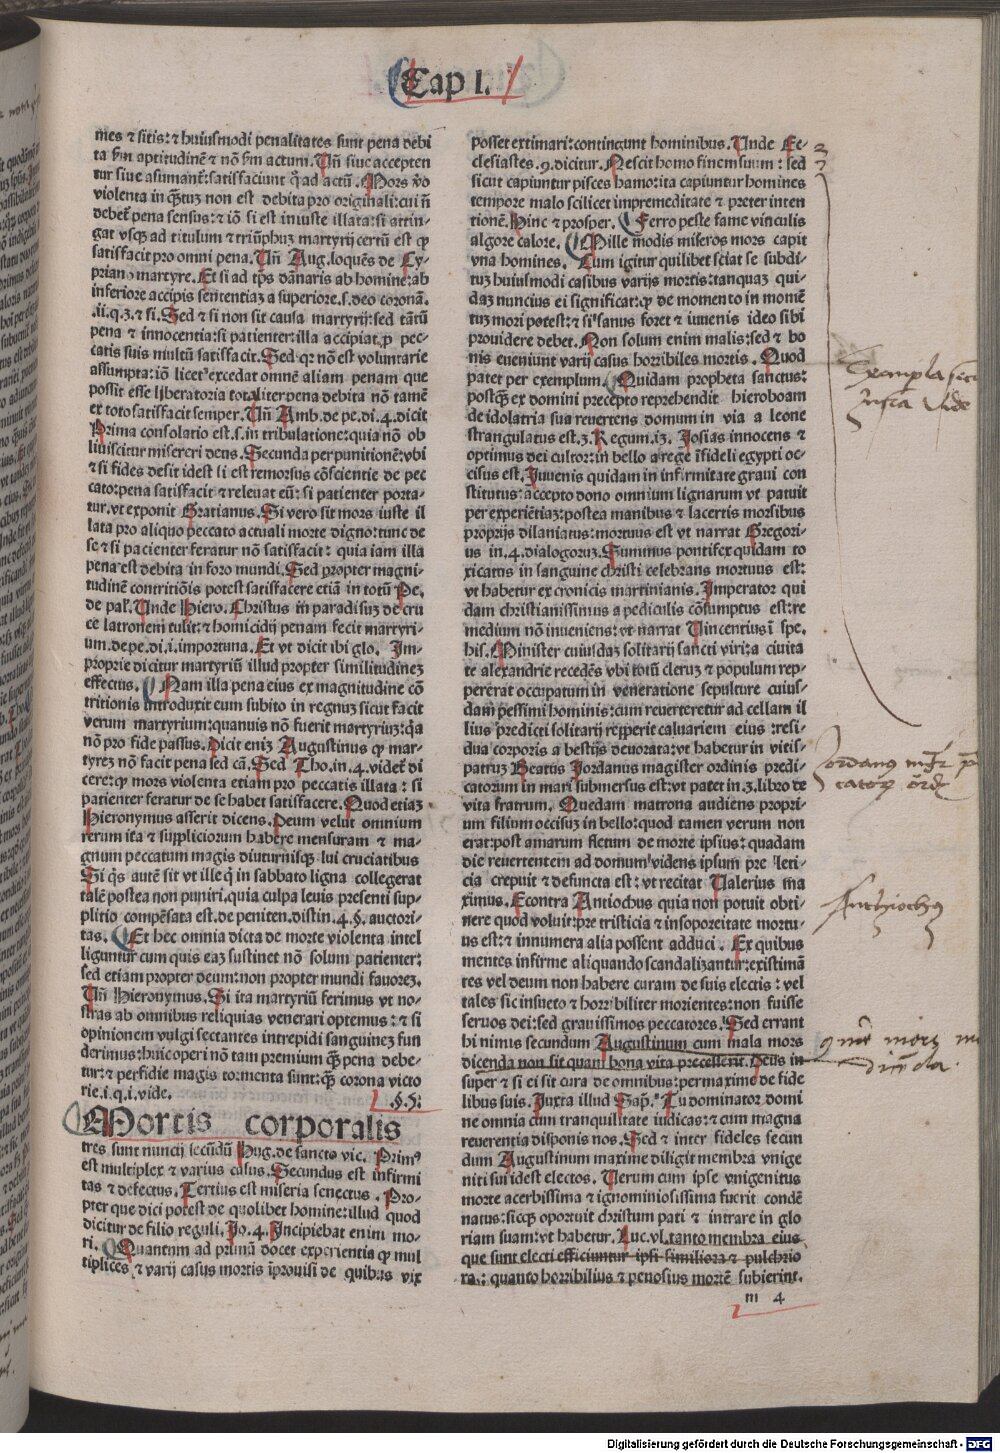 Cap I.
mes ⁊ sitis: ⁊ huiusmodi penalitates sunt pena debi
ta ẜm aptitudinē ⁊ nō ẜm actum. Un̄ siue accepten
tur siue asumant̄: satisfaciunt q̄ ad actū. Mors v̄o
violenta in qȝtuȝ non est debita pro originali: cui n̄
debet̄ pena sensus: ⁊ iō si est iniuste illata: si attin-
gat vsqȝ ad titulum ⁊ triūphuȝ martyrij certū est ꝙ
satisfacit pro omni pena. Un̄ Aug. loquēs de Cy-
priano martyre. Et si ad tp̄s dānaris ab homine: ab
inferiore accipis sententiaȝ a superiore .s. deo coronā.
.ii. q. 3. ⁊ si. Sed ⁊ si non sit causa martyrij: sed tātū
pena ⁊ innocentia: si patienter: illa accipiat̄ ꝓ pec-
catis suis multū satisfacit. Sed qr nō est voluntarie
assumpta: iō licet excedat omnē aliam penam que
possit esse liberatoria totaliter pena debita nō tamē
ex toto satisfacit semper. Un̄ Amb. de pe. di. 4. dicit
Prima consolatio est .s. in tribulatione: quia nō ob
liuiscitur misereri deus. Secunda per punitionē: vbi
⁊ si fides desit idest li est remorsus cōscientie de pec
cato: pena satisfacit ⁊ releuat eū: si patienter porta-
tur. vt exponit Gratianus. Si vero sit mors iuste il
lata pro aliquo peccato actuali morte digno: tunc de
se ⁊ si pacienter feratur nō satisfacit: quia iam illa
pena est debita in foro mundi. Sed propter magni-
tudinē contritiōis potest satisfacere etiā in totū Pe.
de pal. Unde Hiero. Christus in paradisuȝ de cru
ce latronem tulit: ⁊ homicidij penam fecit martyri-
um. de pe. di. i. importuna. Et vt dicit ibi glo. Im-
proprie dicitur martyriū illud propter similitudineȝ
effectus. Nam illa pena eius ex magnitudine cō
tritionis introduxit eum subito in regnuȝ sicut facit
verum martyrium: quanuis nō fuerit martyriuȝ: qȝa
nō pro fide passus. Dicit eniȝ Augustinus ꝙ mar-
tyreȝ nō facit pena sed cā. Sed Tho. in. 4. videt̄ di
cere: ꝙ mors violenta etiam pro peccatis illata: si
patienter feratur de se habet satisfacere. Quod etiaȝ
Hieronymus asserit dicens. Deum velut omnium
rerum ita ⁊ suppliciorum habere mensuram ⁊ ma-
gnum peccatum magis diuturnisqȝ lui cruciatibus
Si q̄s autē sit vt ille q̄ in sabbato ligna collegerat
talē postea non puniri, quia culpa leuis presenti sup-
plitio compēsata est. de peniten. distin. 4. §. auctori-
tas. Et hec omnia dicta de morte violenta intel
liguntur cum quis eaȝ sustinet nō solum patienter:
sed etiam propter deum: non propter mundi fauoreȝ.
Un̄ Hieronymus. Si ita martyriū ferimus vt no-
stras ab omnibus reliquias venerari optemus: ⁊ si
opinionem vulgi sectantes intrepidi sanguineȝ fun
derimus: huic operi nō tam premium qȝ pena debe-
tur: ⁊ perfidie magis tormenta sunt: qȝ corona victo
rie. i. q. i. vide. .§. 5:
Mortis corporalis
tres sunt nuncij secūdū Hug. de sancto vic. Primꝰ
est multiplex ⁊ varius casus. Secundus est infirmi
tas ⁊ defectus. Tertius est miseria senectus. Pro-
pter que dici potest de quolibet homine: illud quod
dicitur de filio reguli. Jo. 4. Incipiebat enim mo-
ri. Quantum ad primū docet experientia ꝙ mul
tiplices ⁊ varij casus mortis īprouisi de quibus vix
posset extimari: contingunt hominibus. Unde Ec-
clesiastes. 9. dicitur. Nescit homo finem suum: sed
sicut capiuntur pisces hamo: ita capiuntur homines
tempore malo scilicet impremeditate ⁊ preter inten
tionē. Hinc ⁊ prosper. Ferro peste fame vinculis
algore calore. Mille modis miseros mors capit
vna homines. Cum igitur quilibet sciat se subdi-
tuȝ huiusmodi casibus varijs mortis: tanquaȝ qui-
daȝ nuncius ei significat: ꝙ de momento in momē
tuȝ mori potest: ⁊ si sanus foret ⁊ iuuenis ideo sibi
prouidere debet. Non solum enim malis: sed ⁊ bo
nis eueniunt varij casus horribiles mortis. Quod
patet per exemplum. Quidam propheta sanctus:
postqȝ ex domini precepto reprehendit hieroboam
de idolatria sua reuertens domum in via a leone
strangulatus est. 3. Regum. i3. Josias innocens ⁊
optimus dei cultor: in bello a rege īfideli egypti oc-
cisus est. Juuenis quidam in infirmitate graui con
stitutus: accepto dono omnium lignarum vt patuit
per experiētiaȝ: postea manibus ⁊ lacertis morsibus
proprijs dilaniatus: mortuus est vt narrat Gregori-
us in. 4. dialogoruȝ. Summus pontifex quidam to
xicatus in sanguine christi celebrans mortuus est:
vt habetur ex cronicis martinianis. Imperator qui
dam christianissimus a pediculis cōsumptus est: re
medium nō inueniens: vt narrat Uincentius ī spe.
his. Minister cuiusdaȝ solitarij sancti viri: a ciuita
te alexandrie recedēs vbi totū cleruȝ ⁊ populum rep-
pererat occupatum in veneratione sepulture cuius-
dam pessimi hominis: cum reuerteretur ad cellam il
lius predicti solitarij repperit caluariem eius: resi-
dua corporis a bestijs deuorata: vt habetur in vitis-
patruȝ Beatus Jordanus magister ordinis predi-
catorum in mari submersus est: vt patet in. 3. libro de
vita fratrum. Quedam matrona audiens propri-
um filium occisuȝ in bello: quod tamen verum non
erat: post amarum fletum de morte ipsius: quadam
die reuertentem ad domum videns ipsum pre leti-
cia crepuit ⁊ defuncta est: vt recitat Ualerius ma
ximus. Econtra Antiochus quia non potuit obti-
nere quod voluit: pre tristicia ⁊ insoporeitate mortu-
us est: ⁊ innumera alia possent adduci. Ex quibus
mentes infirme aliquando scandalizantur: existimā
tes vel deum non habere curam de suis electis: vel
tales sic insueto ⁊ horribiliter morientes: non fuisse
seruos dei: sed grauissimos peccatores. Sed errant
hi nimus secundum Augustinum cum mala mors
dicenda non sit quam bona vita precellerit. Deus in
super ⁊ si ei sit cura de omnibus: permaxime de fide
libus suis. Juxta illud Sap. Tu dominator domi
ne omnia cum tranquilitate iudicas: ⁊ cum magna
reuerentia disponis nos. Sed ⁊ inter fideles secun
dum Augustinum maxime diligit membra vnige
niti sui idest electos. Uerum cum ipse vnigenitus
morte acerbissima ⁊ ignominiosissima fuerit condē
natus: sicqȝ oportuit christum pati ⁊ intrare in glo
riam suam: vt habetur. Luc. vl. tanto membra eius
que sunt electi efficiuntur ipsi similiora ⁊ pulchrio
ra: quanto horribilius ⁊ penosius mortē subierint.
m 4
Exempla
infra vide
Jordanus mgr
catorꝝ ord
Antiochus
mors
dicēda
Digitalisierung gefördert durch die Deutsche Forschungsgemeinschaft - DFG